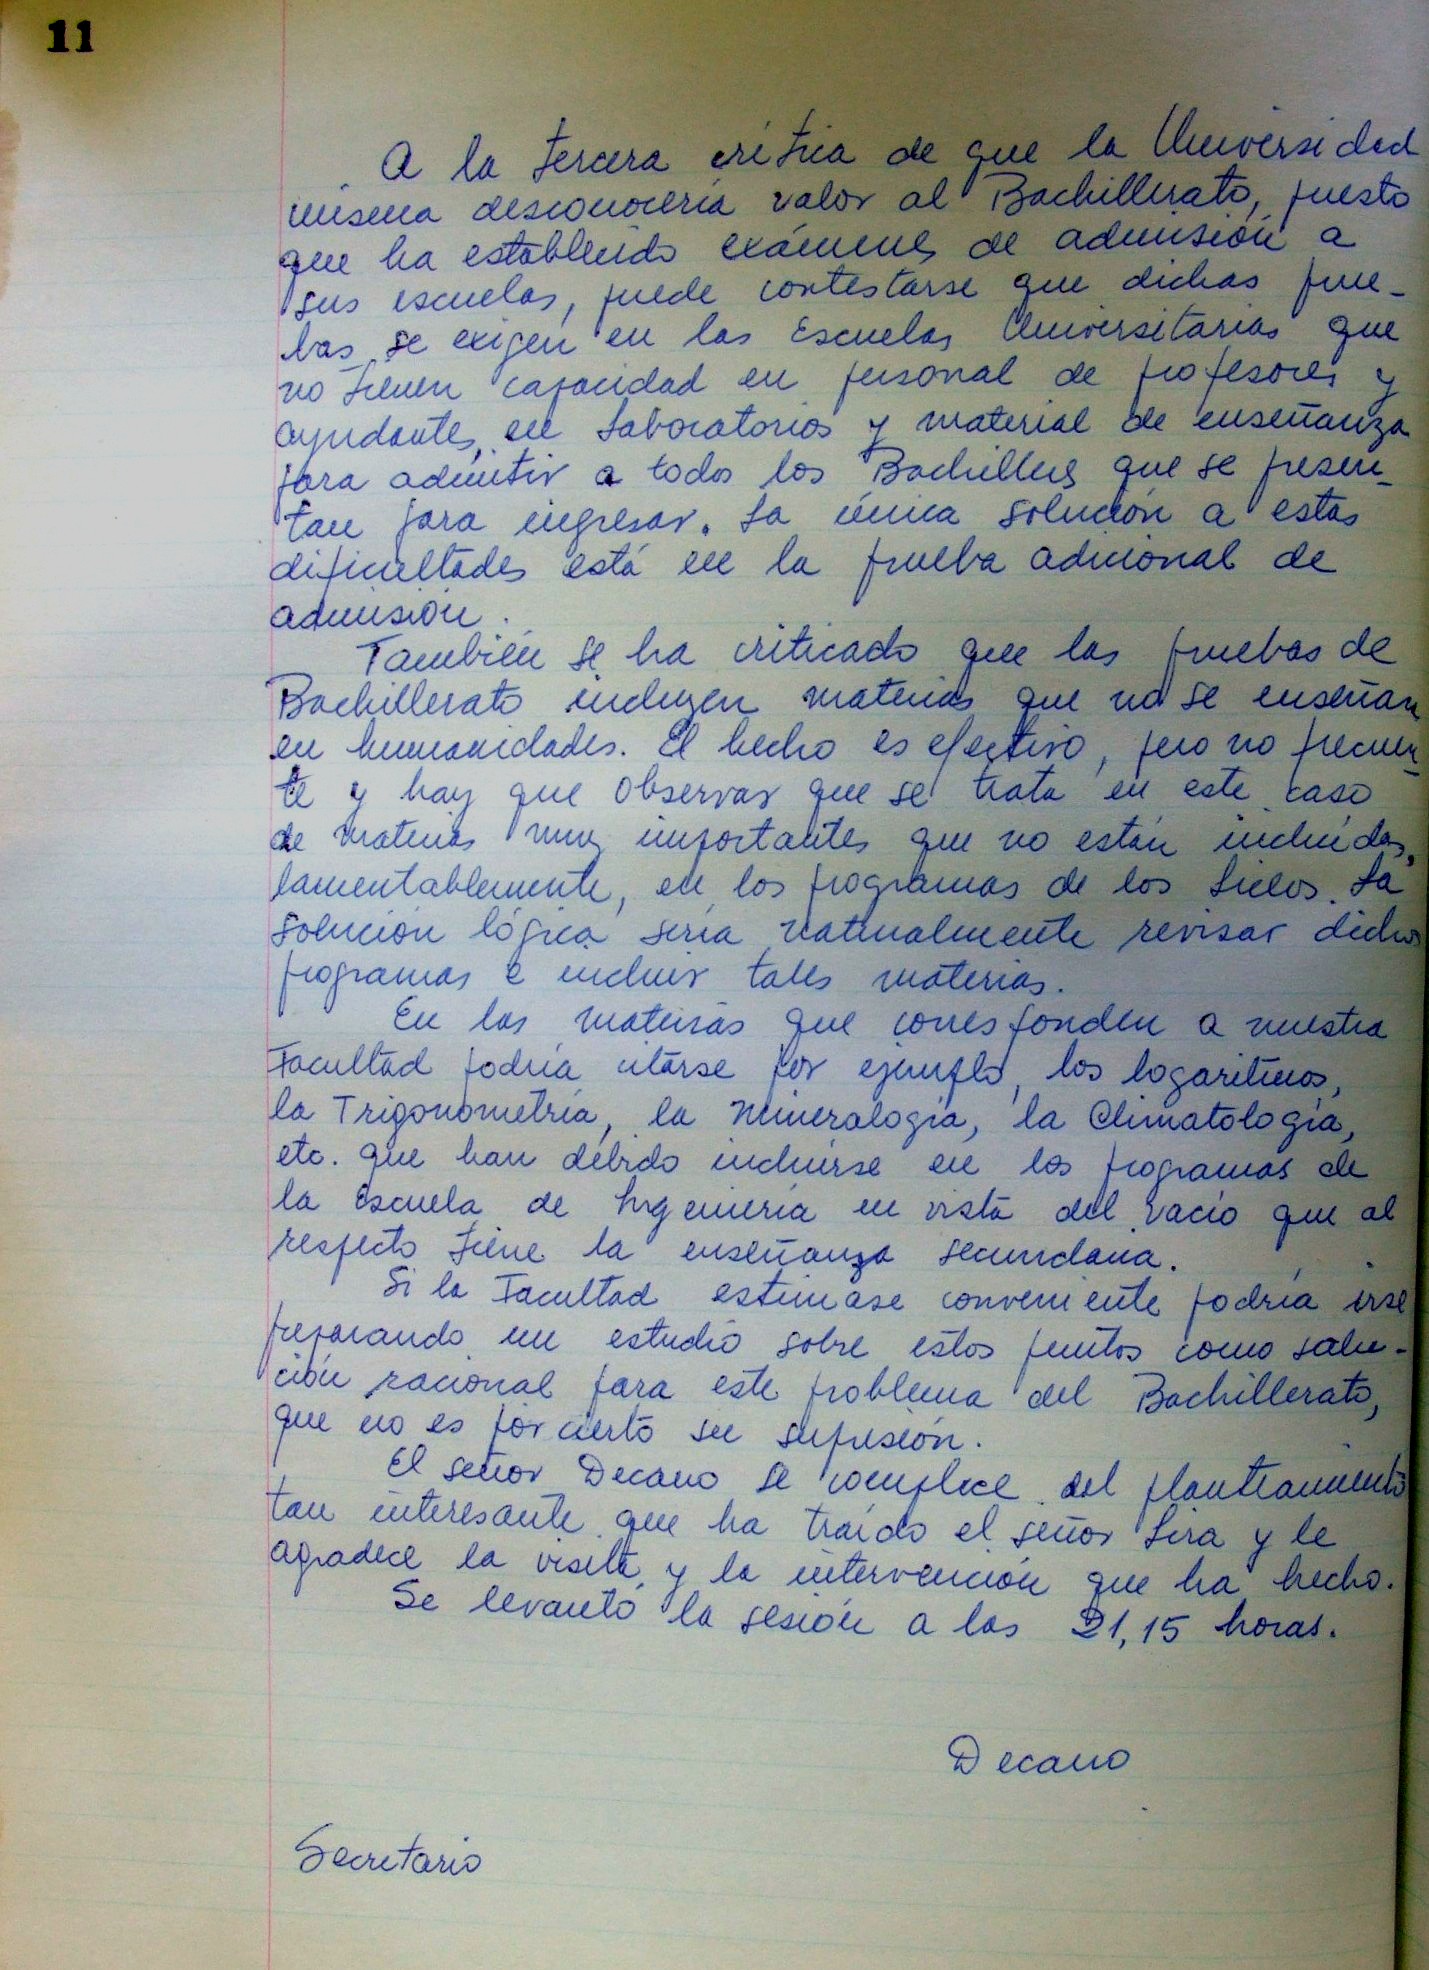 11
A la tercera crítica de que la Universidad
misma desconocería valor al Bachillerato, puesto
que ha establecido exámenes de admisión a
sus escuelas, puede contestarse que dichas prue-
bas se exigen en las Escuelas Universitarias que
no tienen capacidad en personal de profesores y
ayudantes, en Laboratorios y material de enseñanza
para admitir a todos los Bachilleres que se presen-
tan para ingresar. La única solución a estas
dificultades está en la prueba adicional de
admisión.
También se ha criticado que las pruebas de
Bachillerato incluyen materias que no se enseñan
en humanidades. El hecho es efectivo, pero no frecuen-
te y hay que observar que se trata en este caso
de materias muy importantes que no están incluídas,
lamentablemente, en los programas de los Liceos. La
solución lógica sería naturalmente revisar dichos
programas e incluir tales materias.
En las materias que corresponden a nuestra
Facultad podría citarse por ejemplo, los logaritmos,
la Trigonometría, la Mineralogía, la Climatología,
etc. que han debido incluirse en los programas de
la Escuela de Ingeniería en vista del vacío que al
respecto tiene la enseñanza secundaria.
Si la Facultad estimase conveniente podría irse
preparando un estudio sobre estos puntos como solu-
ción racional para este problema del Bachillerato,
que no es por cierto su supresión.
El señor Decano se complace del planteamiento
tan interesante que ha traído el señor Lira y le
agradece la visita y la intervención que ha hecho.
Se levantó la sesión a las 21,15 horas.
Decano
Secretario